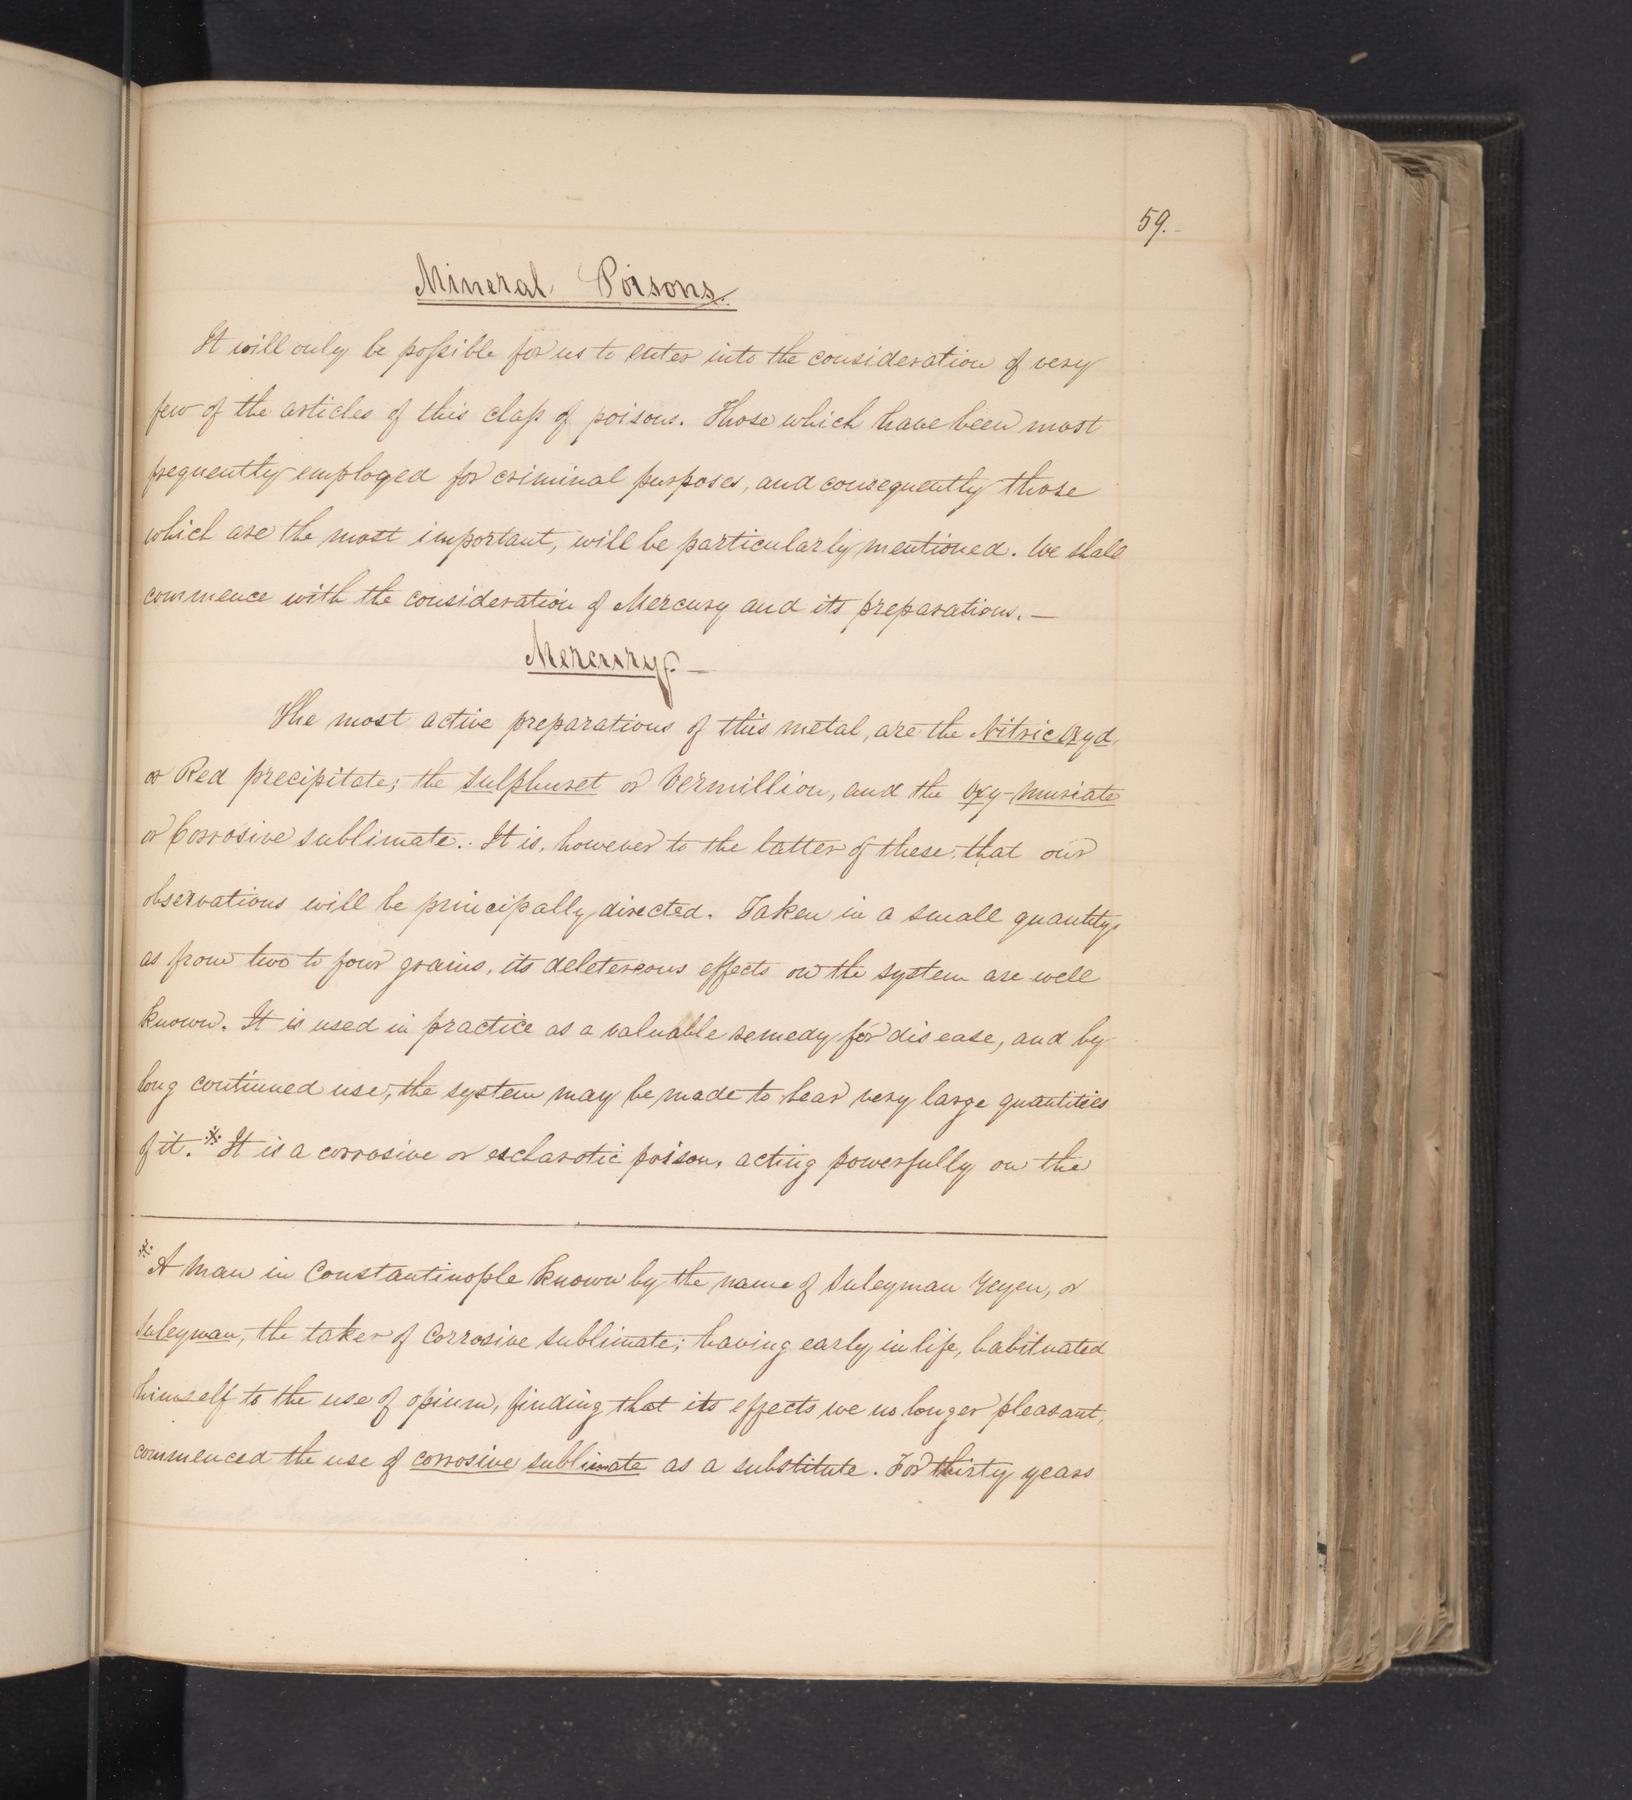 59.
Mineral Poisons.
It will only be possible for us to enter into the consideration of very
few of the articles of this class of poisons. Those which have been most
frequently employed for criminal purposes, and consequently those
which are the most important, will be particularly mentioned. We shall
commence with the consideration of Mercury and its preparations. —
Mercury. —
The most active preparations of this metal, are the Nitric Oxyd.
or Red precipitate; the Sulphuret or Vermillion, and the Oxy-muriate
or Corrosive sublimate. It is, however to the latter of these, that our
observations will be principally directed. Taken in a small quantity,
as from two to four grains, its deletereous effects on the system are well
known. It is used in practice as a valuable remedy for disease, and by
long continued use, the system may be made to bear very large quantities
of it.* It is a corrosive or escharotic poison, acting powerfully on the
* A man in Constantinople known by the name of Suleyman Yeyen, or
Suleyman, the taker of Corrosive sublimate; having early in life, habituated
himself to the use of opium, finding that its effects we no longer pleasant,
commenced the use of corrosive sublimate as a substitute. For thirty years